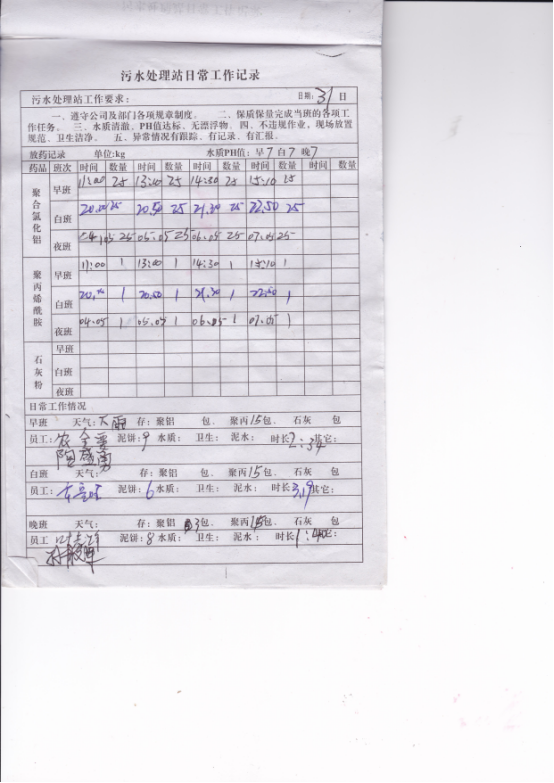 污水处理站日常工作记录
污水处理站工作要求: 日期: 31 日
一、遵守公司及部门各项规章制度。 二、保质保量完成当班的各项工作任务。 三、水质清澈、PH值达标、无漂浮物、四、不违规作业，现场放置
规范、卫生洁净。 五、异常情况有跟踪、有记录、有汇报。
放药记录 单位:kg 水质PH值: 早7 白7 晚7
药品 班次 时间 数量 时间 数量 时间 数量 时间 数量 时间 数量
聚合氯化铝 早班 11:00 25 13:00 25 14:30 25 15:10 25
白班 20.00 25 20.50 25 21.30 25 22.50 25
夜班 04.05 25 05.05 25 06.05 25 07.05 25
聚丙烯酰胺 早班 11:00 1 13:00 1 14:30 1 15:10 1
白班 1 20.50 1 21.30 1 22.50 1
夜班 04.05 1 05.05 1 06.05 1 07.05 1
石灰粉 早班
白班
夜班
日常工作情况
早班 天气: 大雨 存: 聚铝 包、 聚丙15包、 石灰 包
员工: 泥饼: 9 水质: 卫生: 泥水: 时长2:34其它:
陶盛勇
白班 天气: 存: 聚铝 包、 聚丙15包、 石灰 包
员工: 泥饼: 6 水质: 卫生: 泥水: 时长3.19其它:
晚班 天气: 存: 聚铝 3包、 聚丙 包、 石灰 包
员工 泥饼: 8 水质: 卫生: 泥水: 时长1: